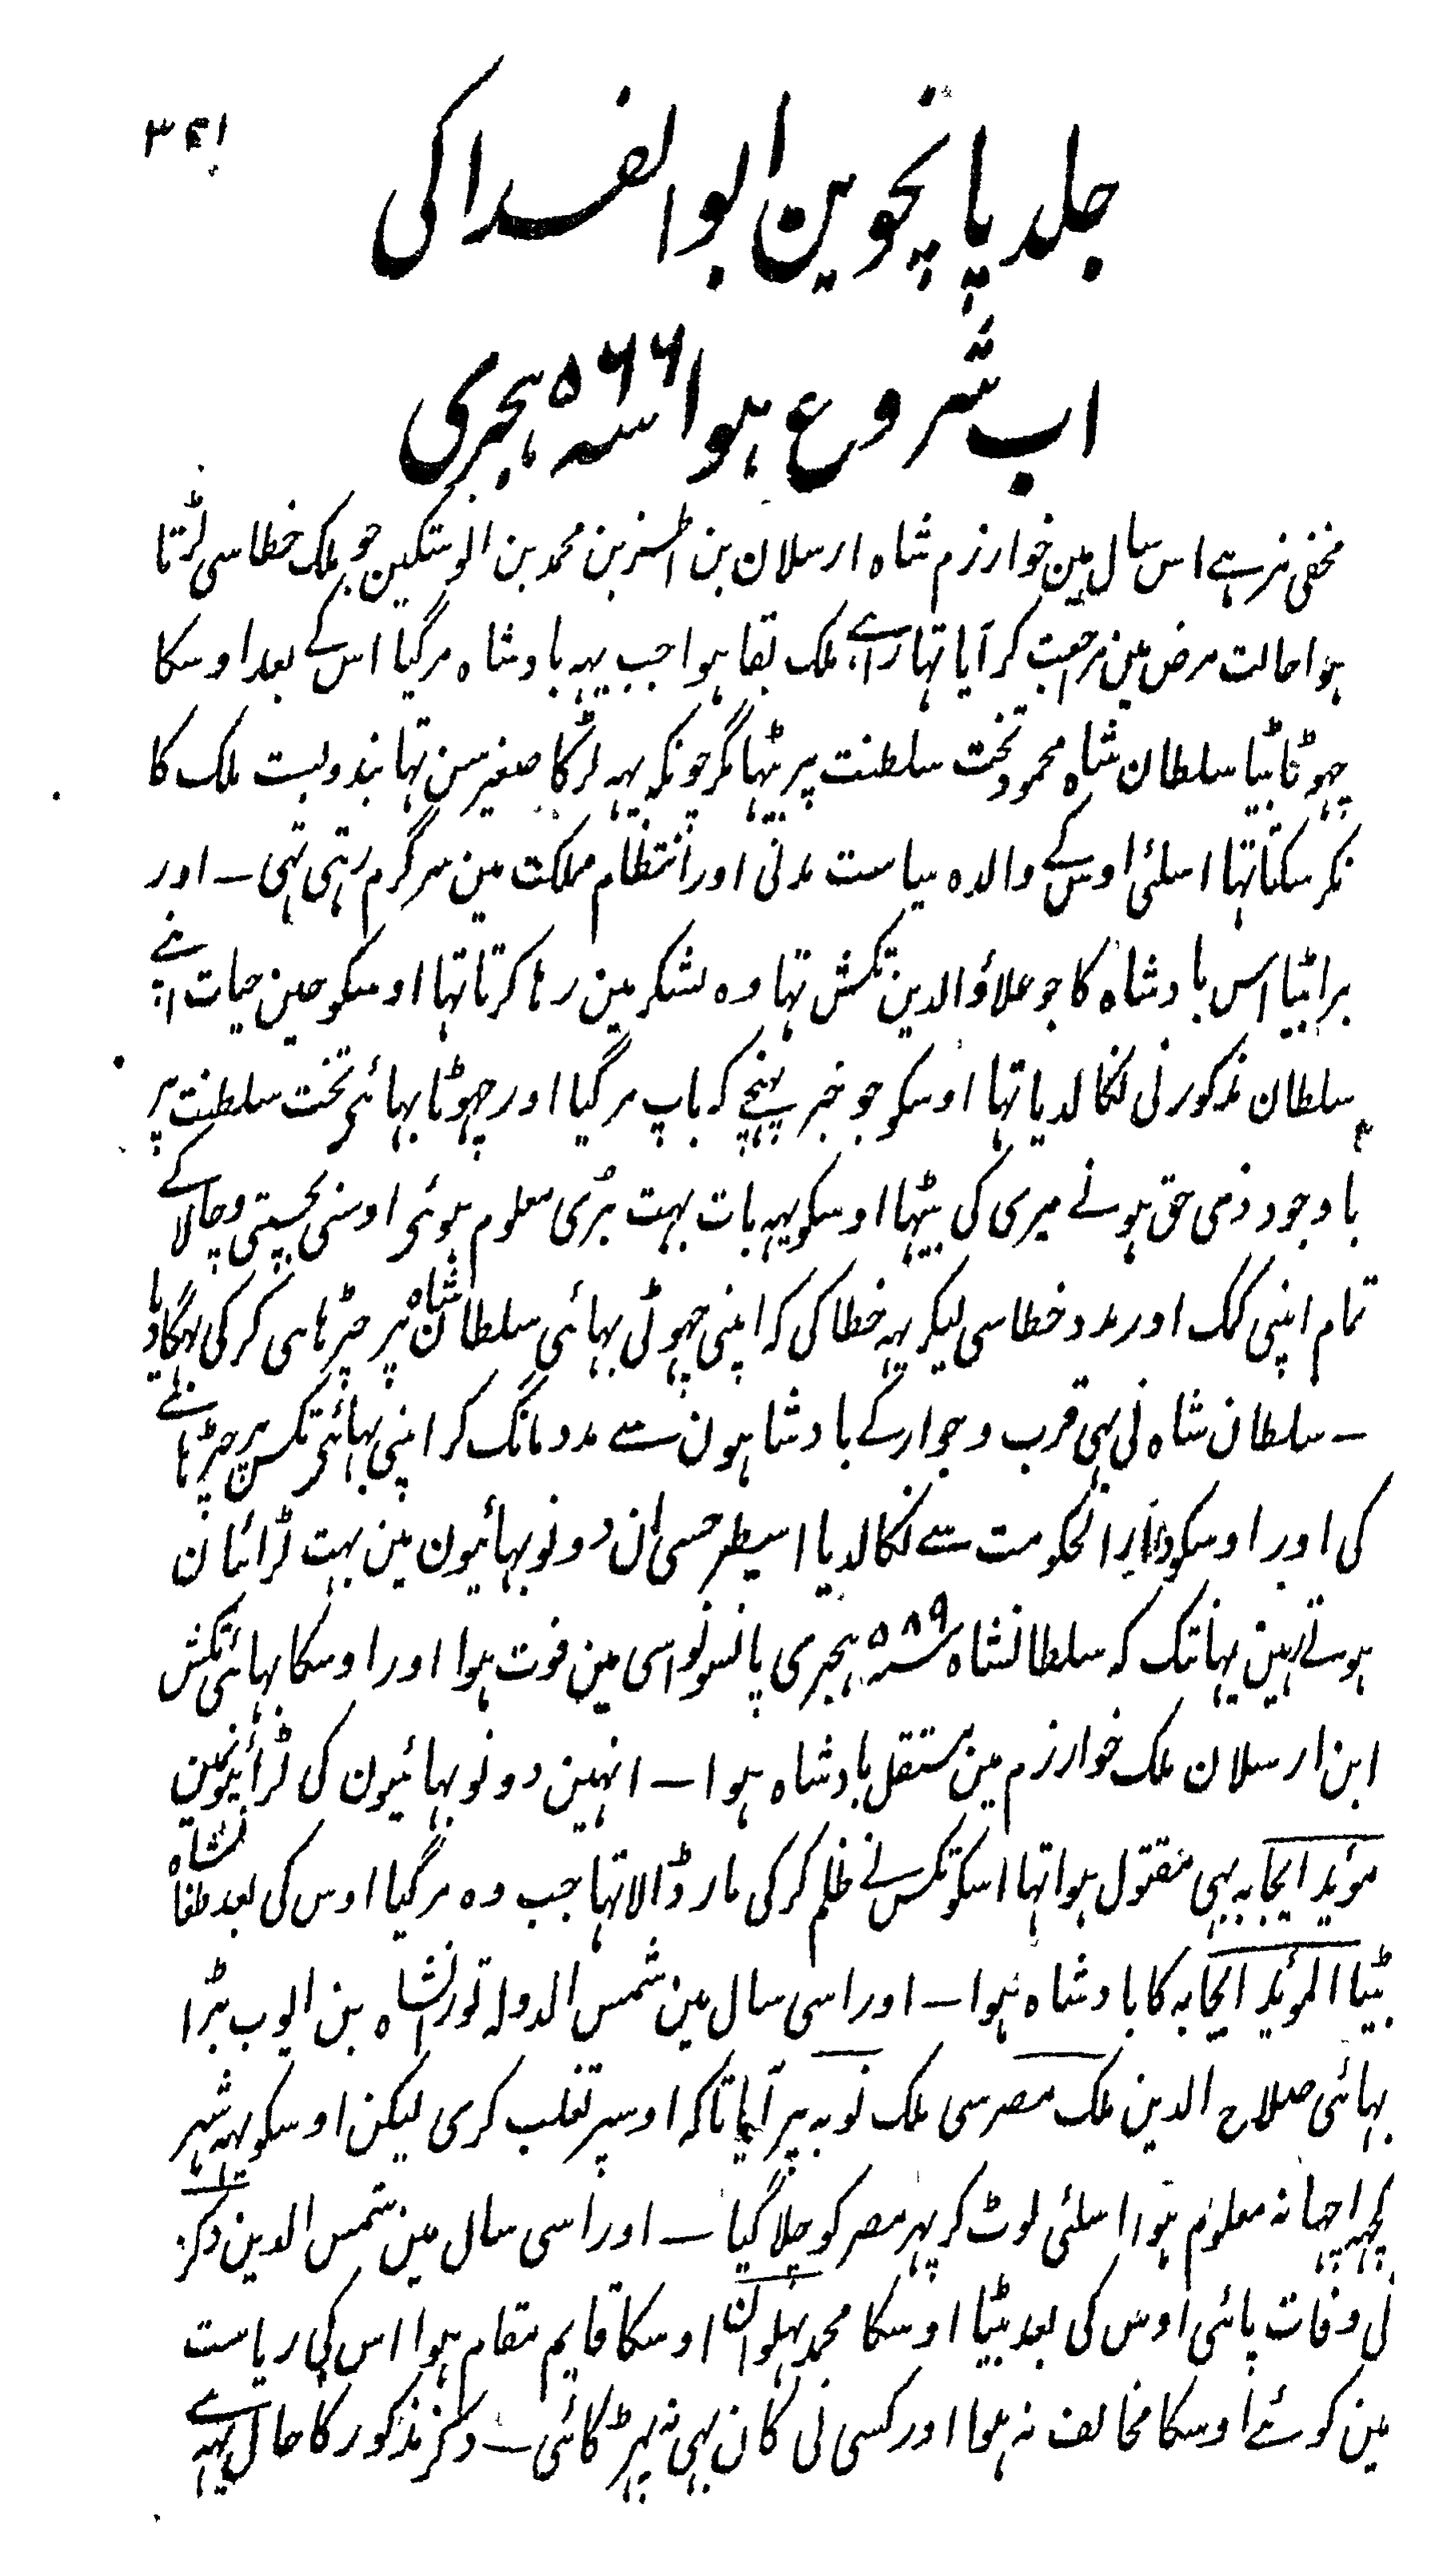 ۳۴۱
جلد پانچوین ابوالفدا کی
اب شروع ہوا سنہ ۵۶۶ ہجری
مخفی نرہے اس سال مین خوارزم شاہ ارسلان بن اطسز بن محمد بن انوشتکین جو ملک خطا سی لڑتا
ہوا حالت مرض مین مرجعت کر آیا تہا راہے ملک بقا ہوا جب یہہ بادشاہ مرگیا اس کے بعد اوسکا
چہوٹا بیٹا سلطان شاہ محمود تخت سلطنت پر بیٹہا مگر چونکہ یہہ لڑکا صغیر سن تہا بندوبست ملک کا
نکر سکتا تہا اسلئی اوس کے والدہ سیاست مدنی اور انتظام مملکت مین سرگرم رہتی تہی ۔ اور
بڑا بیٹا اس بادشاہ کا جو علاؤالدین تکش تہا وہ لشکر مین رہا کرتا تہا اوسکو حین حیات اپنے
سلطان مذکور نی نکالدیا تہا اوسکو جو خبر پہنچے کہ باپ مرگیا اور چہوٹا بہائی تخت سلطنت پر
باوجود ذی حق ہونے میری کی بیٹہا اوسکو یہہ بات بہت بڑی معلوم ہوئی اوسنی بچستی وچالاکے
تمام اپنی کمک اور مدد خطا سی لیکر یہہ خطا کی کہ اپنی چہوٹی بہائی سلطان شاہ پر چڑہاہی کر کی بہگا دیا
۔ سلطان شاہ نی بہی قرب و جوار کے بادشاہون سے مدد مانگ کر اپنی بہائی تکس پر چڑہائے
کی اور اوسکو دارالحکومت سے نکالدیا اسیطرحسی ان دونو بہائیون مین بہت لڑائیان
ہوتے رہین یہانتک کہ سلطانشاہ سنہ ۵۸۹ ہجری پانسو نواسی مین فوت ہوا اور اوسکا بہائی تکش
ابن ارسلان ملک خوارزم مین مستقل بادشاہ ہوا ۔ انہین دونو بہائیون کی لڑائیونمین
موئد ایجابہ بہی مقتول ہوا تہا اسکو تکس نے ظلم کر کی مار ڈالا تہا جب وہ مرگیا اوس کی بعد طغانشاہ
بیٹا الموئد ایجابہ کا بادشاہ ہوا ۔ اور اسی سال مین شمس الدولہ تورانشاہ بن ایوب بڑا
بہائی صلاح الدین ملک مصر سی ملک نوبہ پر آیا تاکہ اوسپر تغلب کری لیکن اوسکو یہہ شہر
کچہہ اچہا نہ معلوم ہوا اسلئی لوٹ کر پہر مصر کو چلا گیا ۔ اور اسی سال مین شمس الدین دکز
نی وفات پائی اوس کی بعد بیٹا اوسکا محمد پہلوان اوسکا قایم مقام ہوا اس کی ریاست
مین کوئے اوسکا مخالف نہ ہوا اور کسی نی کان بہی نہ پہڑکائی ۔ دکز مذکور کا حال یہہ ہے